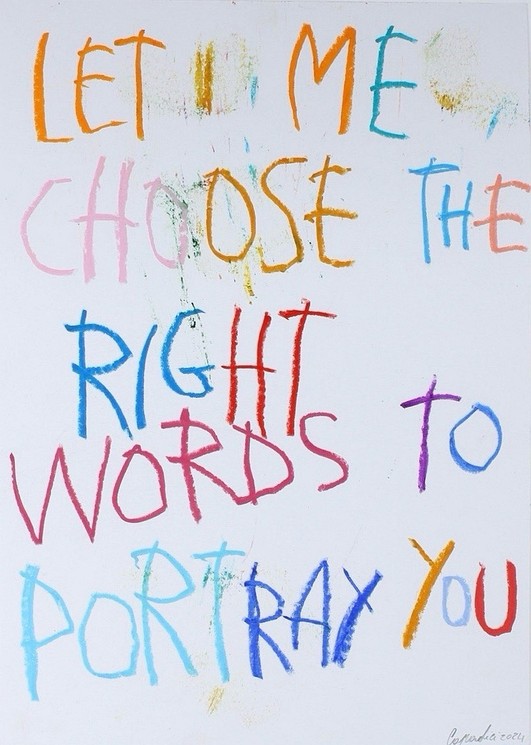 LET ME
CHOOSE THE
RIGHT
WORDS TO
PORTRAY YOU
2024